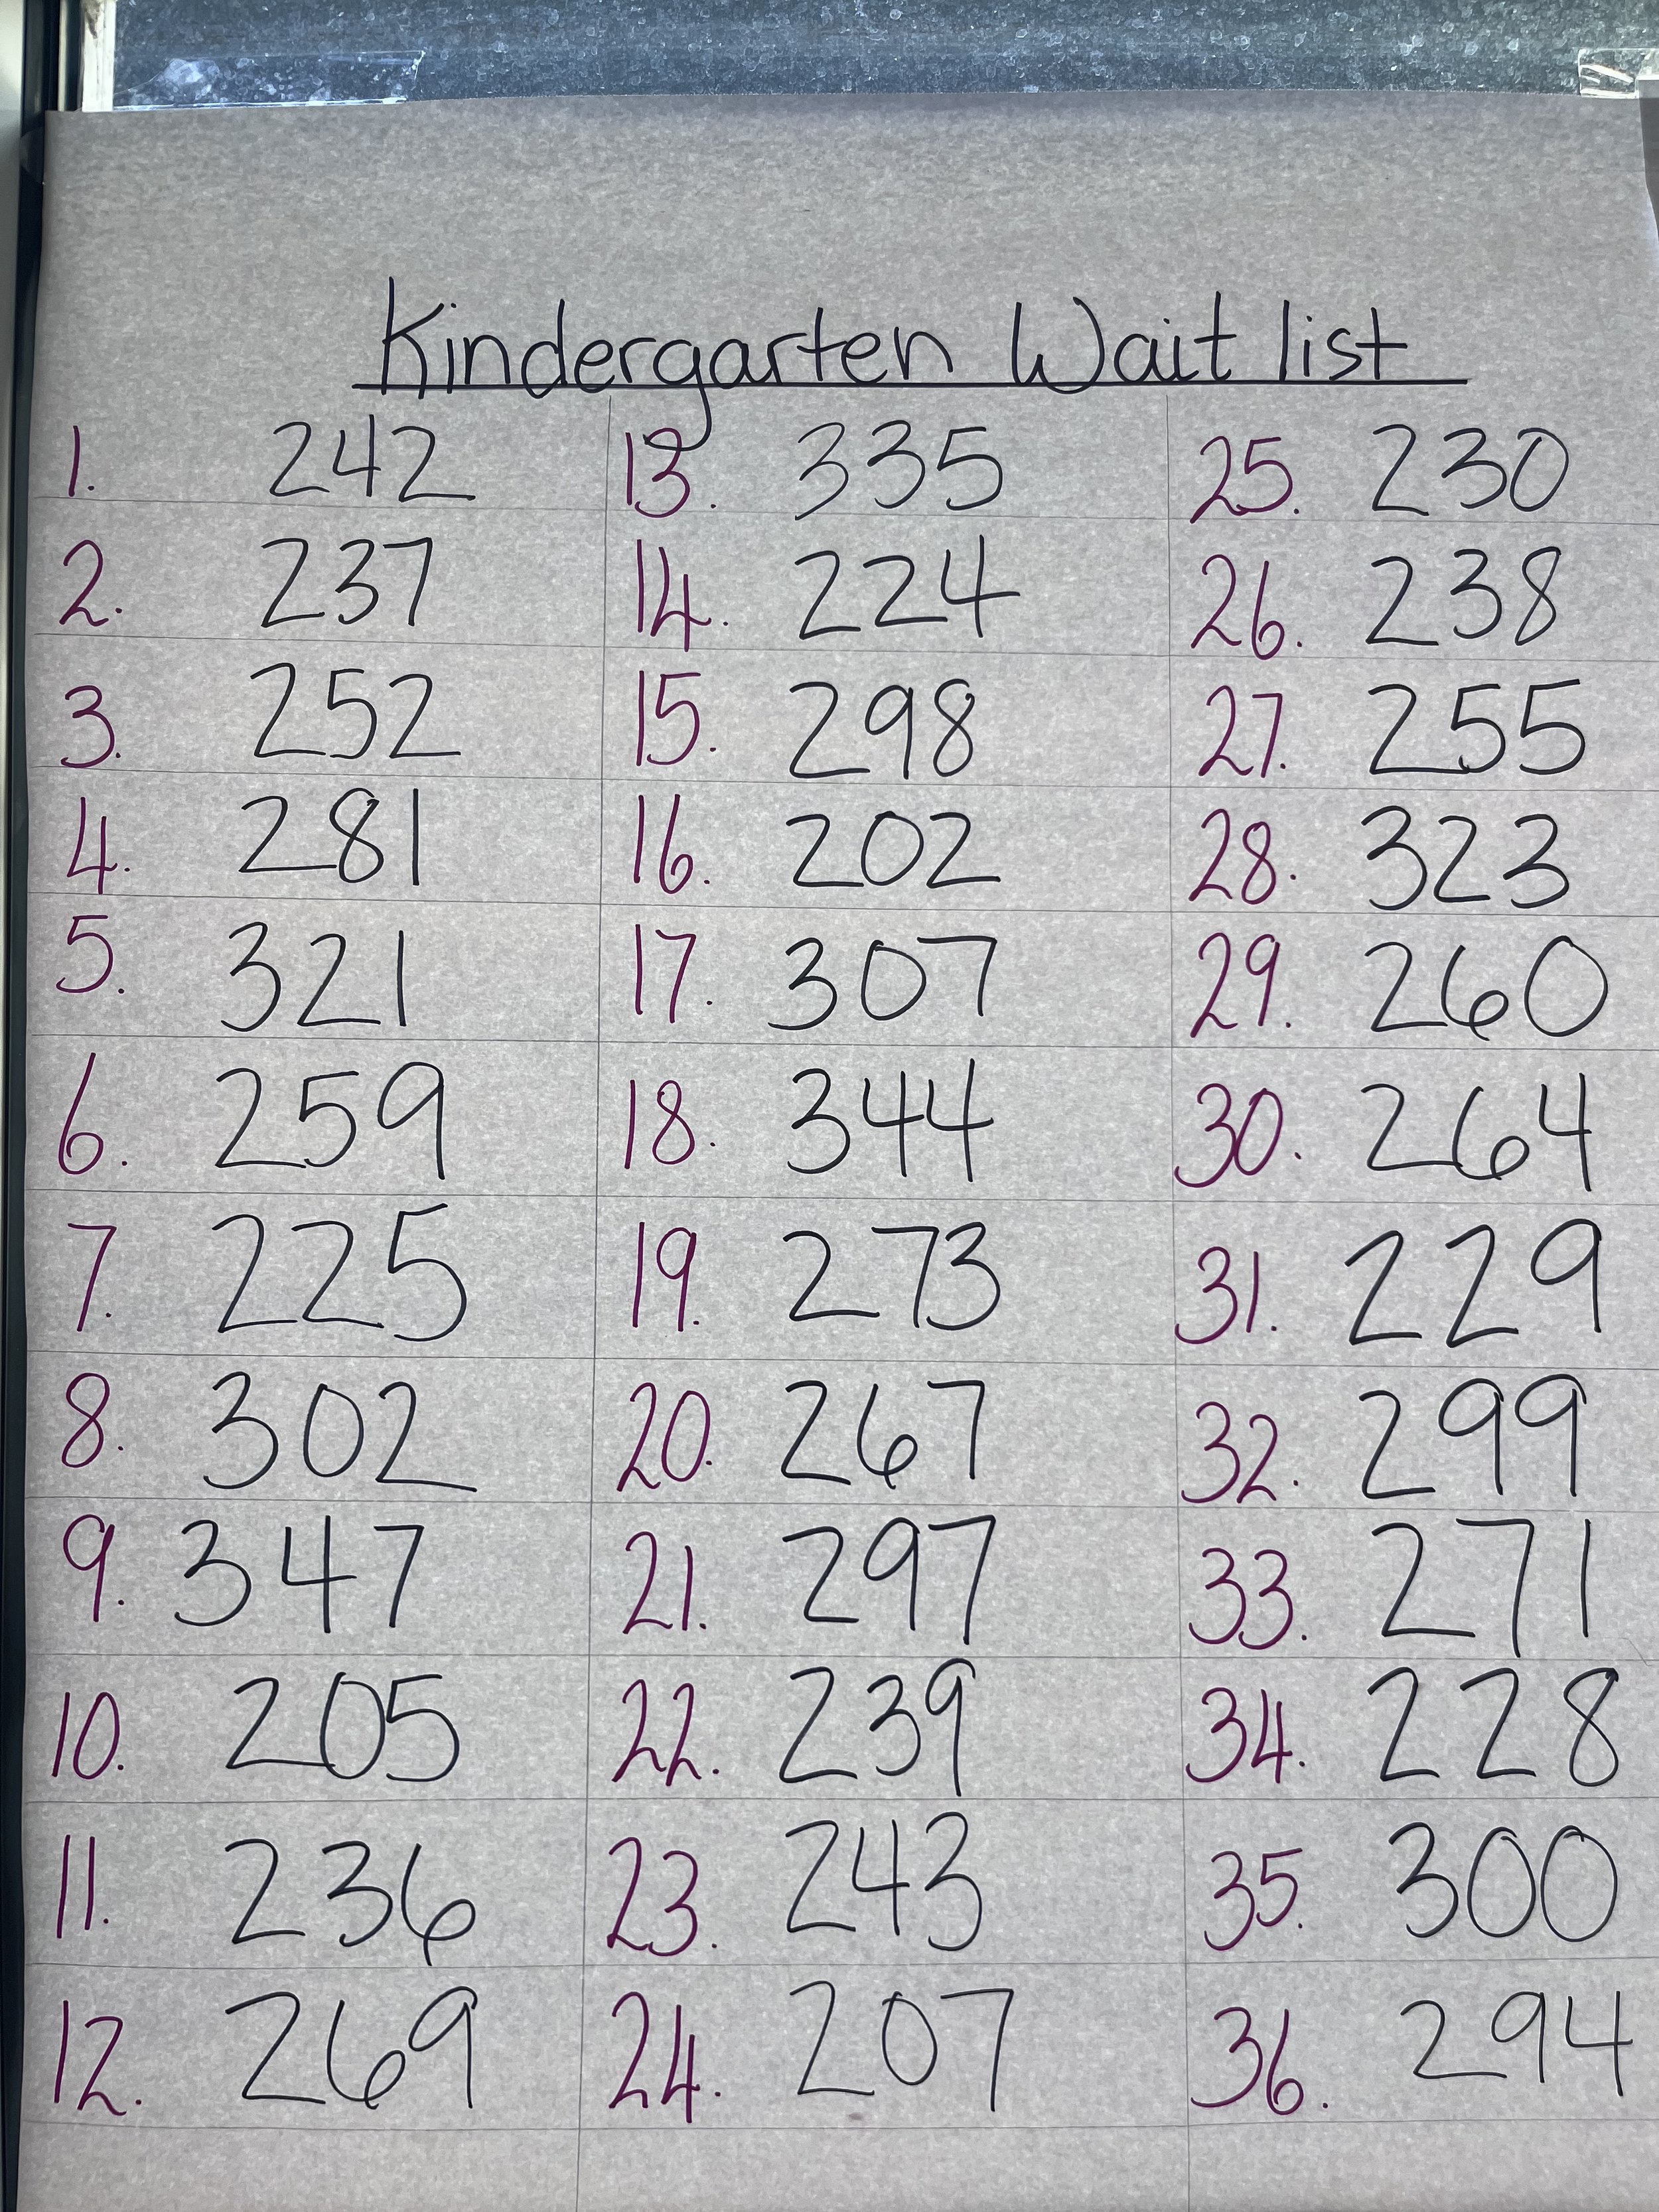 Kindergarten Wait list
1. 242
2. 237
3. 252
4. 281
5. 321
6. 259
7. 225
8. 302
9. 347
10. 205
11. 236
12. 269
13. 335
14. 224
15. 298
16. 202
17. 307
18. 344
19. 273
20. 267
21. 297
22. 239
23. 243
24. 207
25. 230
26. 238
27. 255
28. 323
29. 260
30. 264
31. 229
32. 299
33. 271
34. 228
35. 300
36. 294